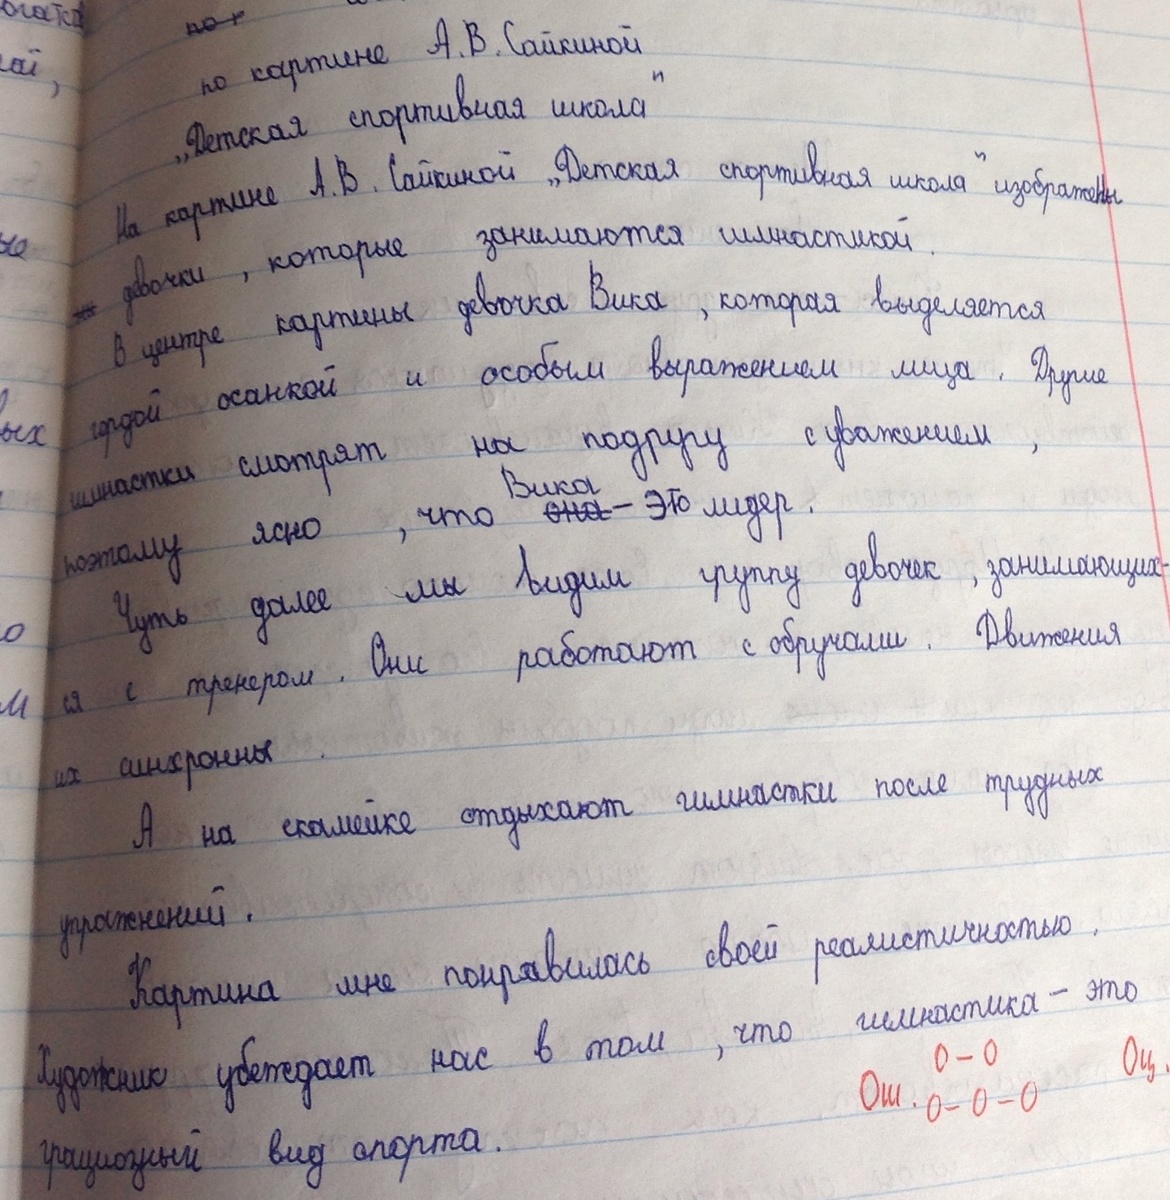 по картине А.В. Сайкиной
„Детская спортивная школа"
На картине А.В. Сайкиной „Детская спортивная школа" изображены
девочки, которые занимаются гимнастикой.
В центре картины девочка Вика, которая выделяется
гордой осанкой и особым выражением лица. Другие
гимнастки смотрят на подругу с уважением,
Вика
поэтому ясно, что она – это лидер.
Чуть далее мы видим группу девочек, занимающих-
ся с тренером. Они работают с обручами. Движения
их синхронны.
А на скамейке отдыхают гимнастки после трудных
упражнений.
Картина мне понравилась своей реалистичностью.
Художник убеждает нас в том, что гимнастика – это
грациозный вид спорта.
Ош. 0 – 0
0 – 0 – 0
Оц.